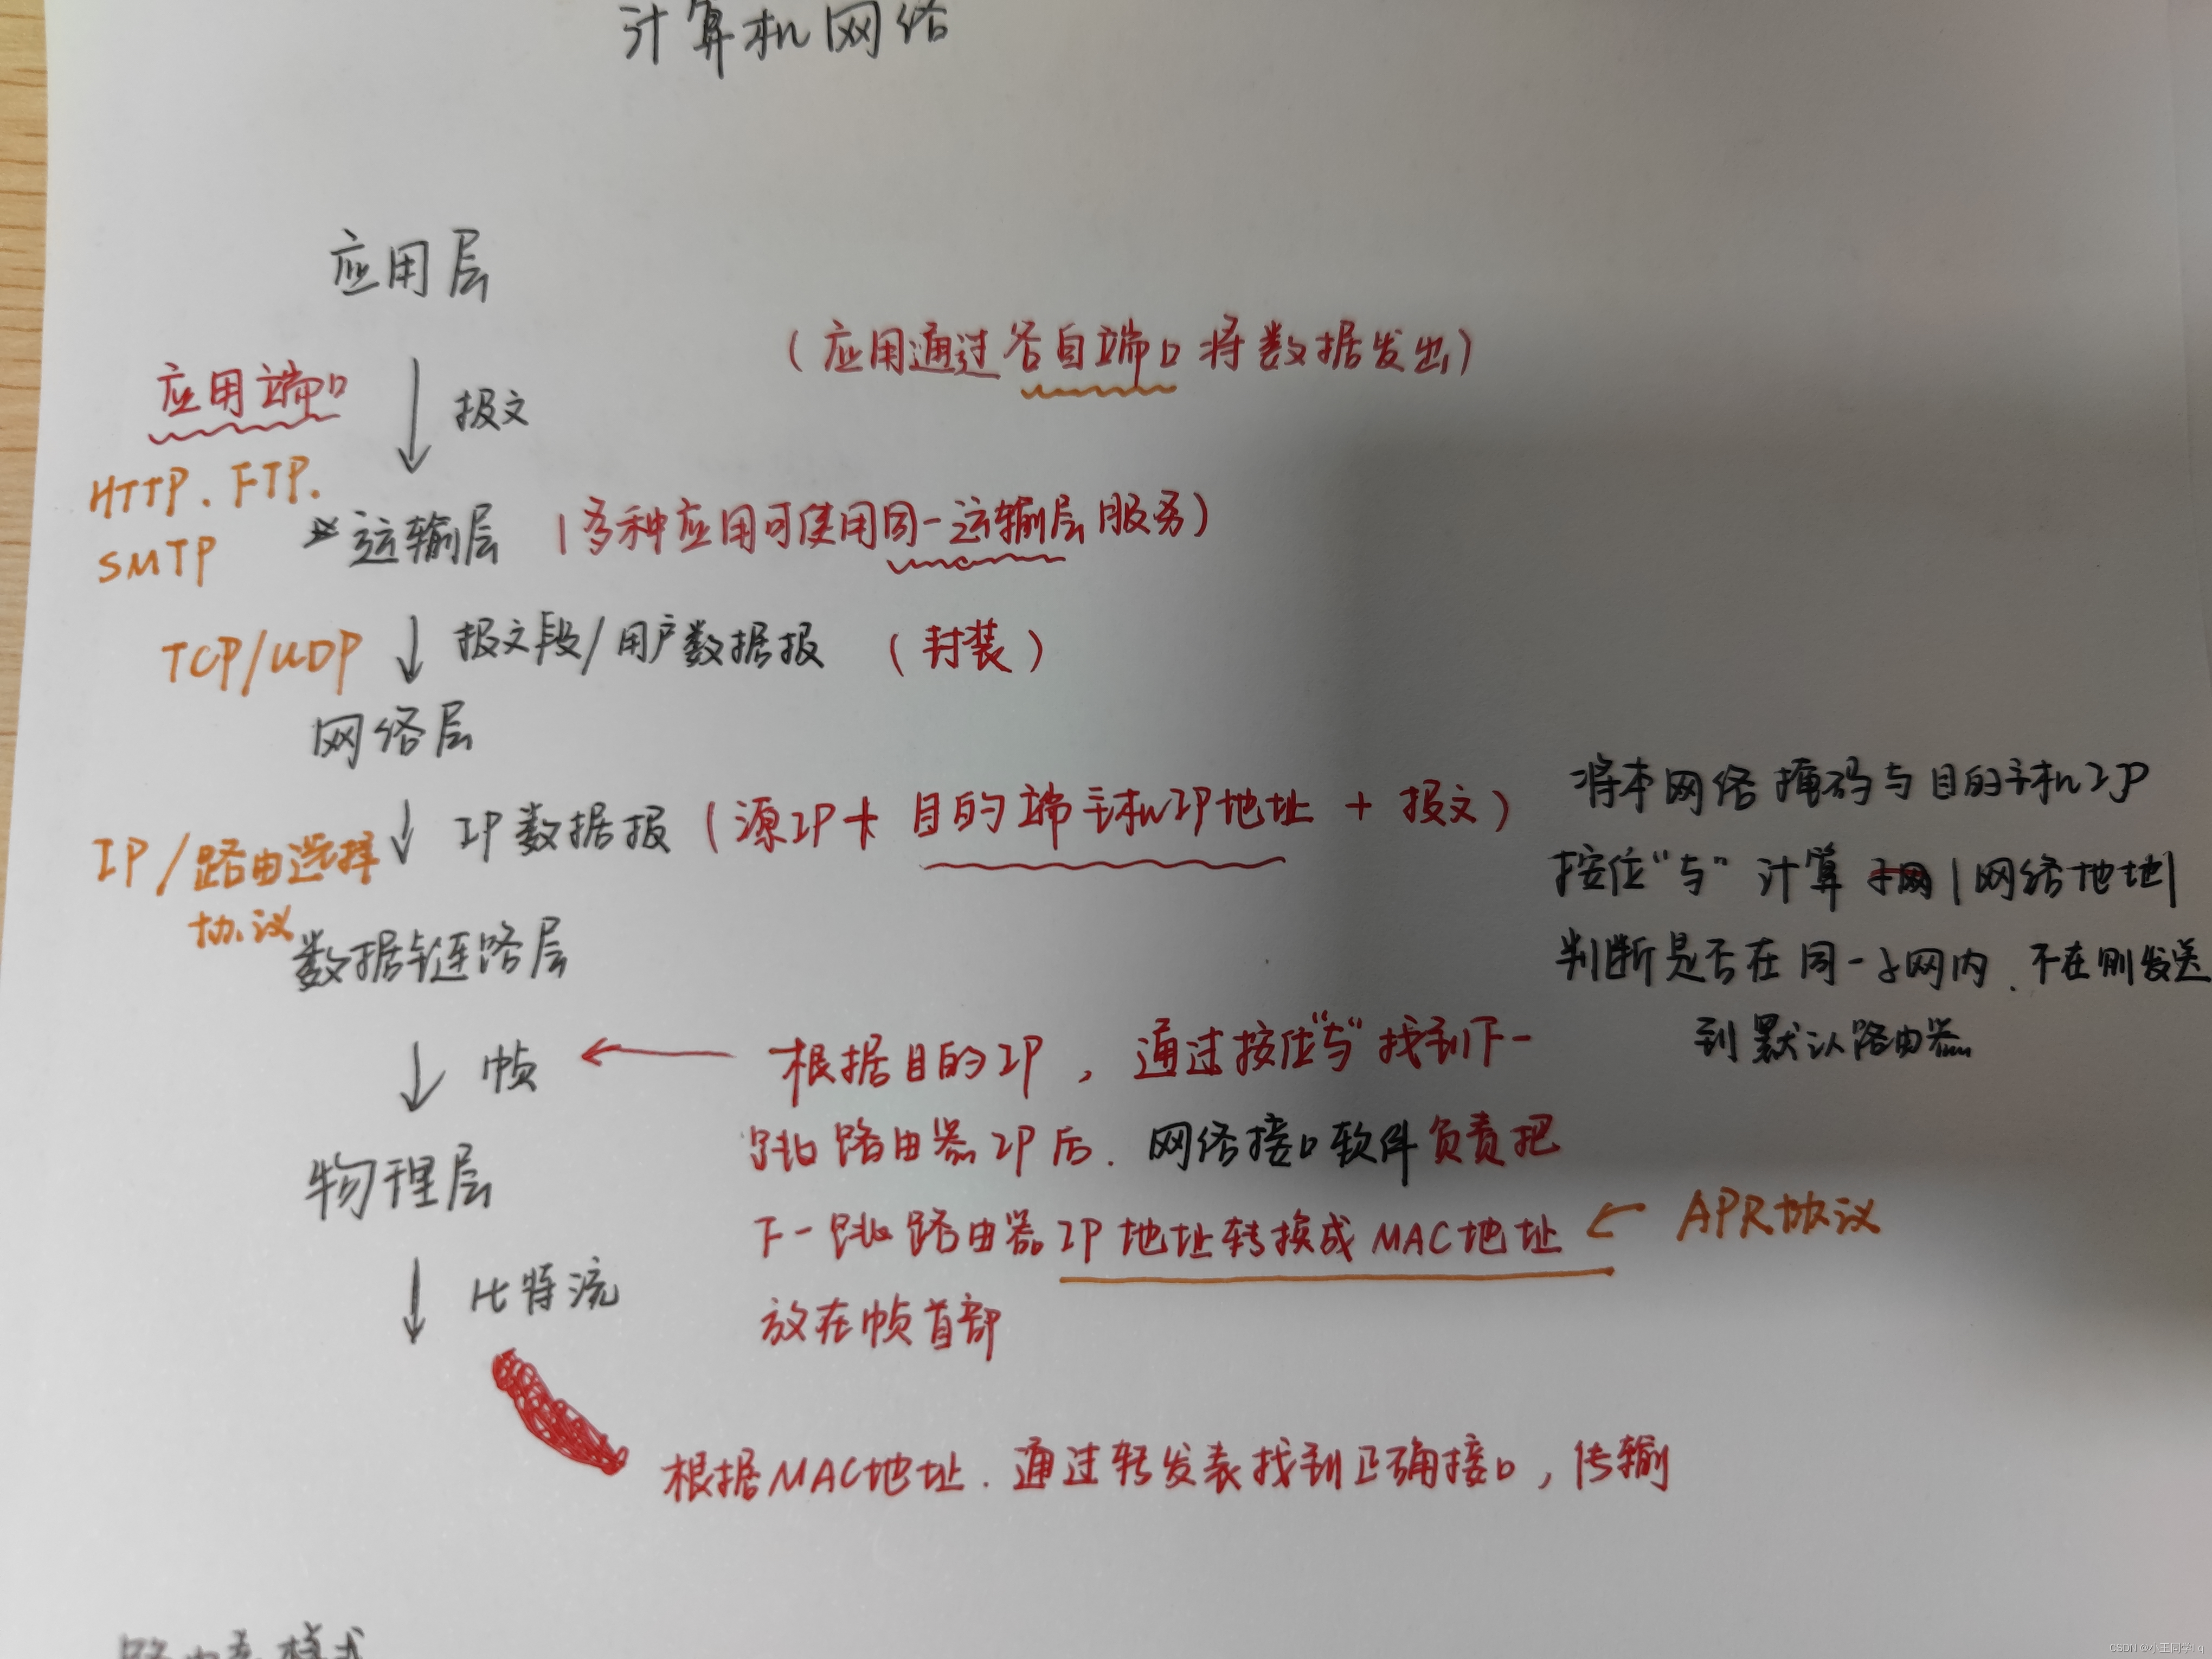 计算机网络
应用层
(应用通过各自端口将数据发出)
应用端口
报文
HTTP. FTP.
SMTP
运输层 (多种应用可使用同一运输层服务)
TCP/UDP
报文段/用户数据报 (封装)
网络层
IP数据报 (源IP+目的端主机IP地址 + 报文)
IP/路由选择
协议
将本网络掩码与目的主机IP
按位“与”计算子网|网络地址|
判断是否在同一子网内.不在则发送
到默认路由器
数据链路层
帧
根据目的IP, 通过按位“与”找到下一
跳路由器IP后. 网络接口软件负责把
下一跳路由器IP地址转换成MAC地址
放在帧首部
APR协议
物理层
比特流
根据MAC地址. 通过转发表找到正确接口, 传输
路由表样式
CSDN @小王同学